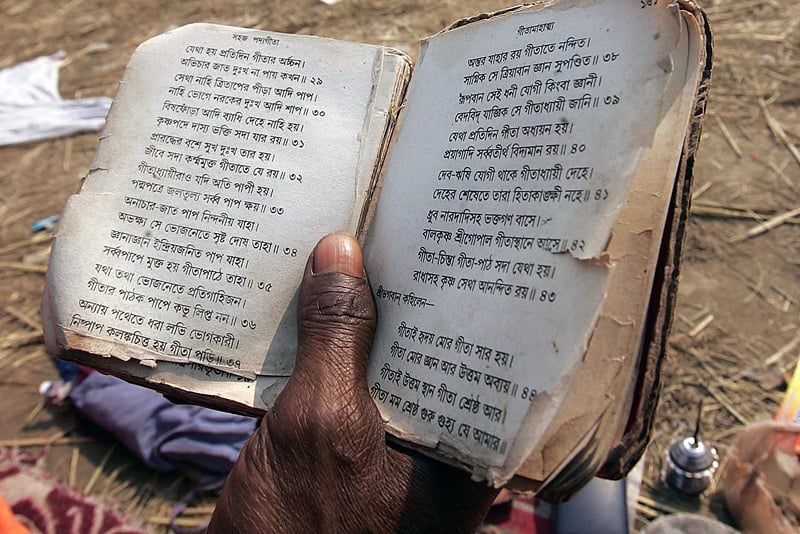 সহজ পদ্যগীতা
যেথা হয় প্রতিদিন গীতার অর্চ্চন।
অভিচার জাত দুঃখ না পায় কখন॥ ২৯
সেথা নাহি ত্রিতাপের পীড়া আদি পাপ।
নাহি ভোগে নরকের দুঃখ আদি শাপ॥ ৩০
বিষফোঁড়া আদি ব্যাধি দেহে নাহি হয়।
কৃষ্ণপদে দাস্য ভক্তি সদা যার রয়॥ ৩১
প্রারব্ধের বশে সুখ দুঃখ তার হয়।
জীবে সদা কর্ম্মমুক্ত গীতাতে যে রয়॥ ৩২
গীতাধ্যায়ীরাও যদি অতি পাপী হয়।
পদ্মপত্রে জলতুল্য সর্ব্ব পাপ ক্ষয়॥ ৩৩
অনাচার-জাত পাপ নিন্দনীয় যাহা।
অভক্ষ্য সে ভোজনেতে সৃষ্ট দোষ তাহা॥ ৩৪
জ্ঞানাজ্ঞান ইন্দ্রিয়জনিত পাপ যাহা।
সর্ব্বপাপে মুক্ত হয় গীতাপাঠে তাহা॥ ৩৫
যথা তথা ভোজনেতে প্রতিগ্রাহিজন।
গীতার পাঠক পাপে কভু লিপ্ত নন॥ ৩৬
অন্যায় পথেতে ধরা লভি ভোগকারী।
নিষ্পাপ কলঙ্কচিত্ত হয় গীতা পড়ি॥ ৩৭
গীতামাহাত্ম্য
অন্তর যাহার রয় গীতাতে নন্দিত।
সাগ্নিক সে ত্রিয়াবান জ্ঞান সুপণ্ডিত॥ ৩৮
রূপবান সেই ধনী যোগী কিংবা জ্ঞানী।
বেদবিদ্ যাজ্ঞিক সে গীতাধ্যায়ী জানি॥ ৩৯
যেথা প্রতিদিন গীতা অধ্যয়ন হয়।
প্রয়াগাদি সর্ব্বতীর্থ বিদ্যমান রয়॥ ৪০
দেব-ঋষি যোগী থাকে গীতাধ্যায়ী দেহে।
দেহের শেষেতে তারা হিতাকাঙক্ষী নহে॥ ৪১
ধ্রুব নারদাদিসহ ভক্তগণ বাসে।
বালকৃষ্ণ শ্রীগোপাল গীতাস্থানে আসে॥ ৪২
গীতা-চিন্তা গীতা-পাঠ সদা যেথা হয়।
রাধাসহ কৃষ্ণ সেথা আনন্দিত রয়॥ ৪৩
শ্রীভগবান্ কহিলেন—
গীতাই হৃদয় মোর গীতা সার হয়।
গীতা মোর জ্ঞান আর উত্তম অব্যয়॥ ৪৪
গীতাই উত্তম স্থান গীতা শ্রেষ্ঠ আর।
গীতা মম শ্রেষ্ঠ গুরু গুহ্য যে আমার॥